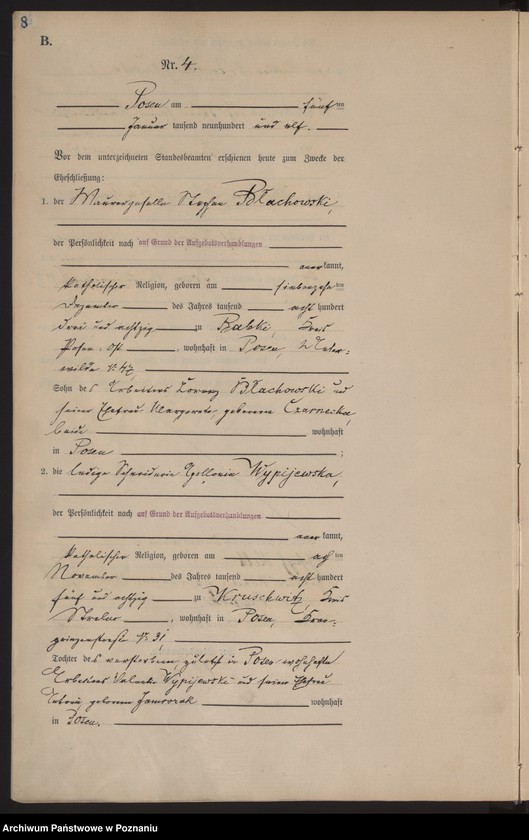 8
B.
Nr. 4.
Posen am fünften
Januar tausend neunhundert und elf.
Vor dem unterzeichneten Standesbeamten erschienen heute zum Zwecke der
Eheschließung:
1. der Maurergeselle Stephan Błachowski,
der Persönlichkeit nach auf Grund der Aufgebotsverhandlungen
anerkannt,
katholischer Religion, geboren am siebenzehnten
Dezember des Jahres tausend acht hundert
drei und achtzig zu Babki, Kreis
Posen Ost, wohnhaft in Posen, Unter-
wilda 47
Sohn des Arbeiters Lorenz Błachowski und
seiner Ehefrau Margarete, geborenen Czarnecka,
beide wohnhaft
in Posen ;
2. die ledige Schneiderin Apollonia Wypijewska,
der Persönlichkeit nach auf Grund der Aufgebotsverhandlungen
anerkannt,
katholischer Religion, geboren am achten
November des Jahres tausend acht hundert
fünf und achtzig zu Kruschwitz, Kreis
Strelno, wohnhaft in Posen,
31
Tochter des verstorbenen, zuletzt in Posen wohnhaften
Arbeiters Valentin Wypijewski und seiner Ehefrau
geborenen wohnhaft
in Posen.
Archiwum Państwowe w Poznaniu